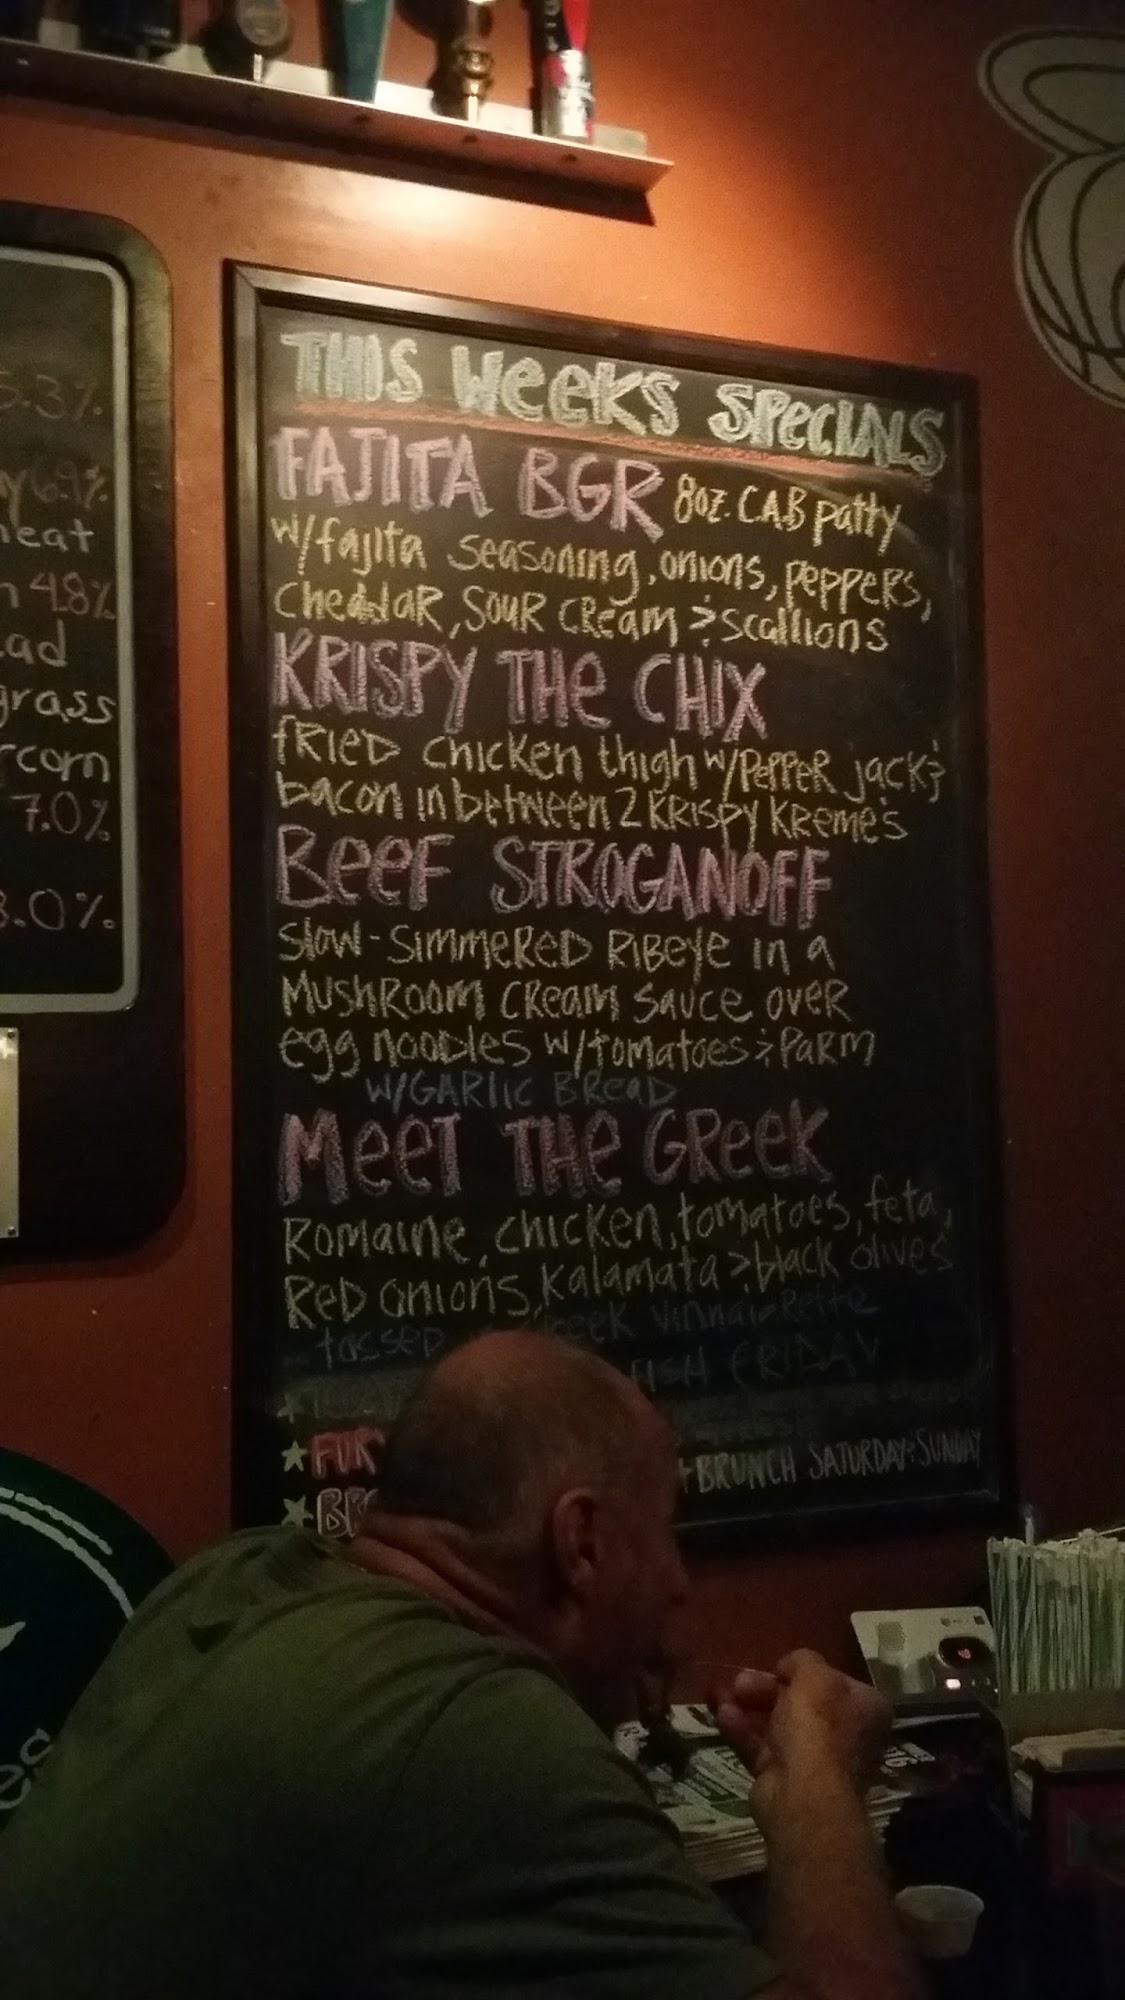 5.3%
6.9%
48%
grass
corn
7.0%
8.0%
THIS WEEKS SPECIALS
FAJITA BGR 8oz. C.A.B patty
w/fajita seasoning, onions, peppers,
CHeddaR, SOUR CReam & scallions
KRISPY THe CHIX
fRIeD chicken thigh w/PePPeR jack &
bacon in between 2 KRISpy KReme's
BeeF STROGANOFF
Slow-SimmeReD RiBeye in a
MUSHROOM CReam sauce over
egg noodles w/tomatoes & PaRm
w/GARlic BReaD
MeeT THe GReek
Romaine, chicken, tomatoes, feta,
ReD onions, kalamata & black olives
tosseD vinnaigRette
FISH FRIDAY
+BRUNCH SATURDAY & SUNDAY